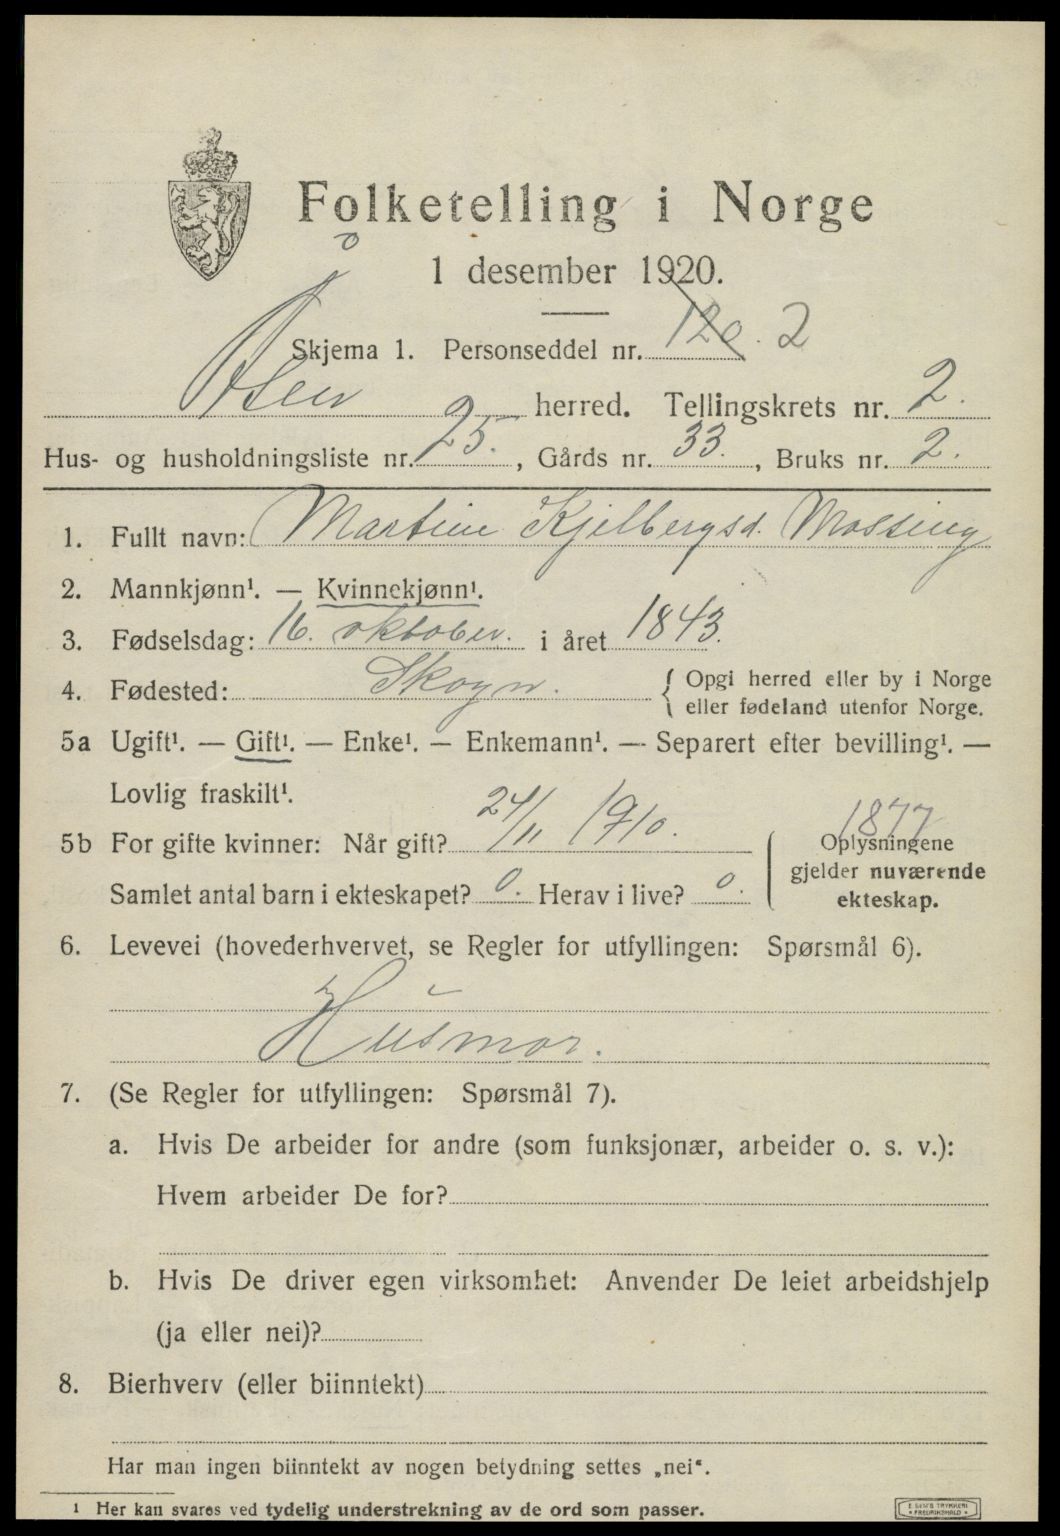 Folketelling i Norge
1 desember 1920.
Skjema 1. Personseddel nr. 120. 2
Åsen herred. Tellingskrets nr. 2.
Hus- og husholdningsliste nr. 25., Gårds nr. 33., Bruks nr. 2.
1. Fullt navn: Martine Kjelbergsd. Mossing
2. Mannkjønn¹. — Kvinnekjønn¹.
3. Fødselsdag: 16. oktober. i året 1843.
4. Fødested: Skogn. { Opgi herred eller by i Norge
eller fødeland utenfor Norge.
5a Ugift¹. — Gift¹. — Enke¹. — Enkemann¹. — Separert efter bevilling¹. —
Lovlig fraskilt¹.
5b For gifte kvinner: Når gift? 24/11 1910. 1877
Samlet antal barn i ekteskapet? 0. Herav i live? 0.
Oplysningene
gjelder nuværende
ekteskap.
6. Levevei (hovederhvervet, se Regler for utfyllingen: Spørsmål 6).
Husmor.
7. (Se Regler for utfyllingen: Spørsmål 7).
a. Hvis De arbeider for andre (som funksjonær, arbeider o. s. v.):
Hvem arbeider De for?
b. Hvis De driver egen virksomhet: Anvender De leiet arbeidshjelp
(ja eller nei)?
8. Bierhverv (eller biinntekt)
Har man ingen biinntekt av nogen betydning settes „nei“.
¹ Her kan svares ved tydelig understrekning av de ord som passer.